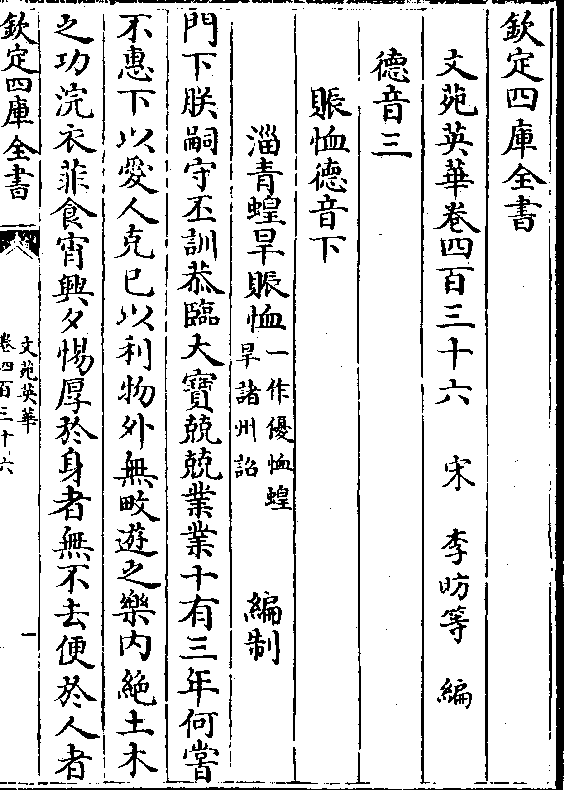 欽定四庫全書
文苑英華卷四百三十六 宋 李昉等 編
德音三
賑恤德音下
淄青蝗旱賑恤一作優恤蝗旱諸州詔 編制
門下朕嗣守丕訓恭臨大寶兢兢業業十有三年何嘗
不惠下以愛人克已以利物外無畋遊之樂内絶土木
之功浣衣菲食宵興夕惕厚於身者無不去便於人者
欽定四庫全書
文苑英華
卷四百三十六
一